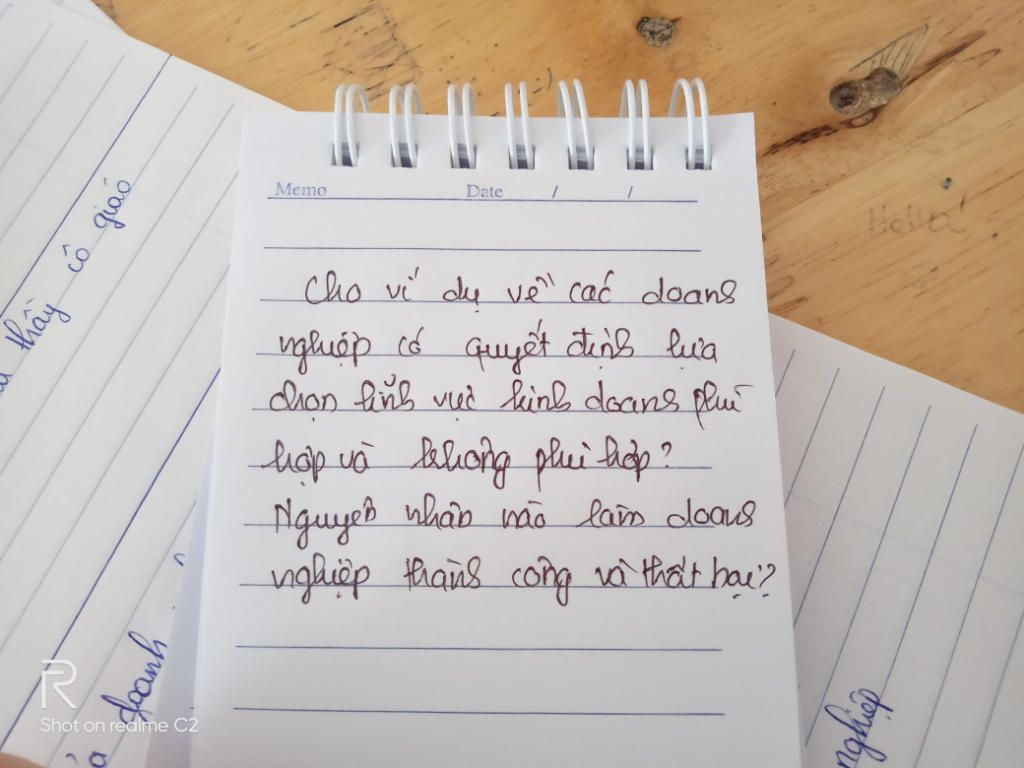 thầy cô giáo
Memo Date / /
Cho ví dụ về các doanh
nghiệp có quyết định lựa
chọn lĩnh vực kinh doanh phù
hợp và không phù hợp?
Nguyên nhân nào làm doanh
nghiệp thành công và thất bại?
Hello!
doanh
nghiệp
R
Shot on realme C2